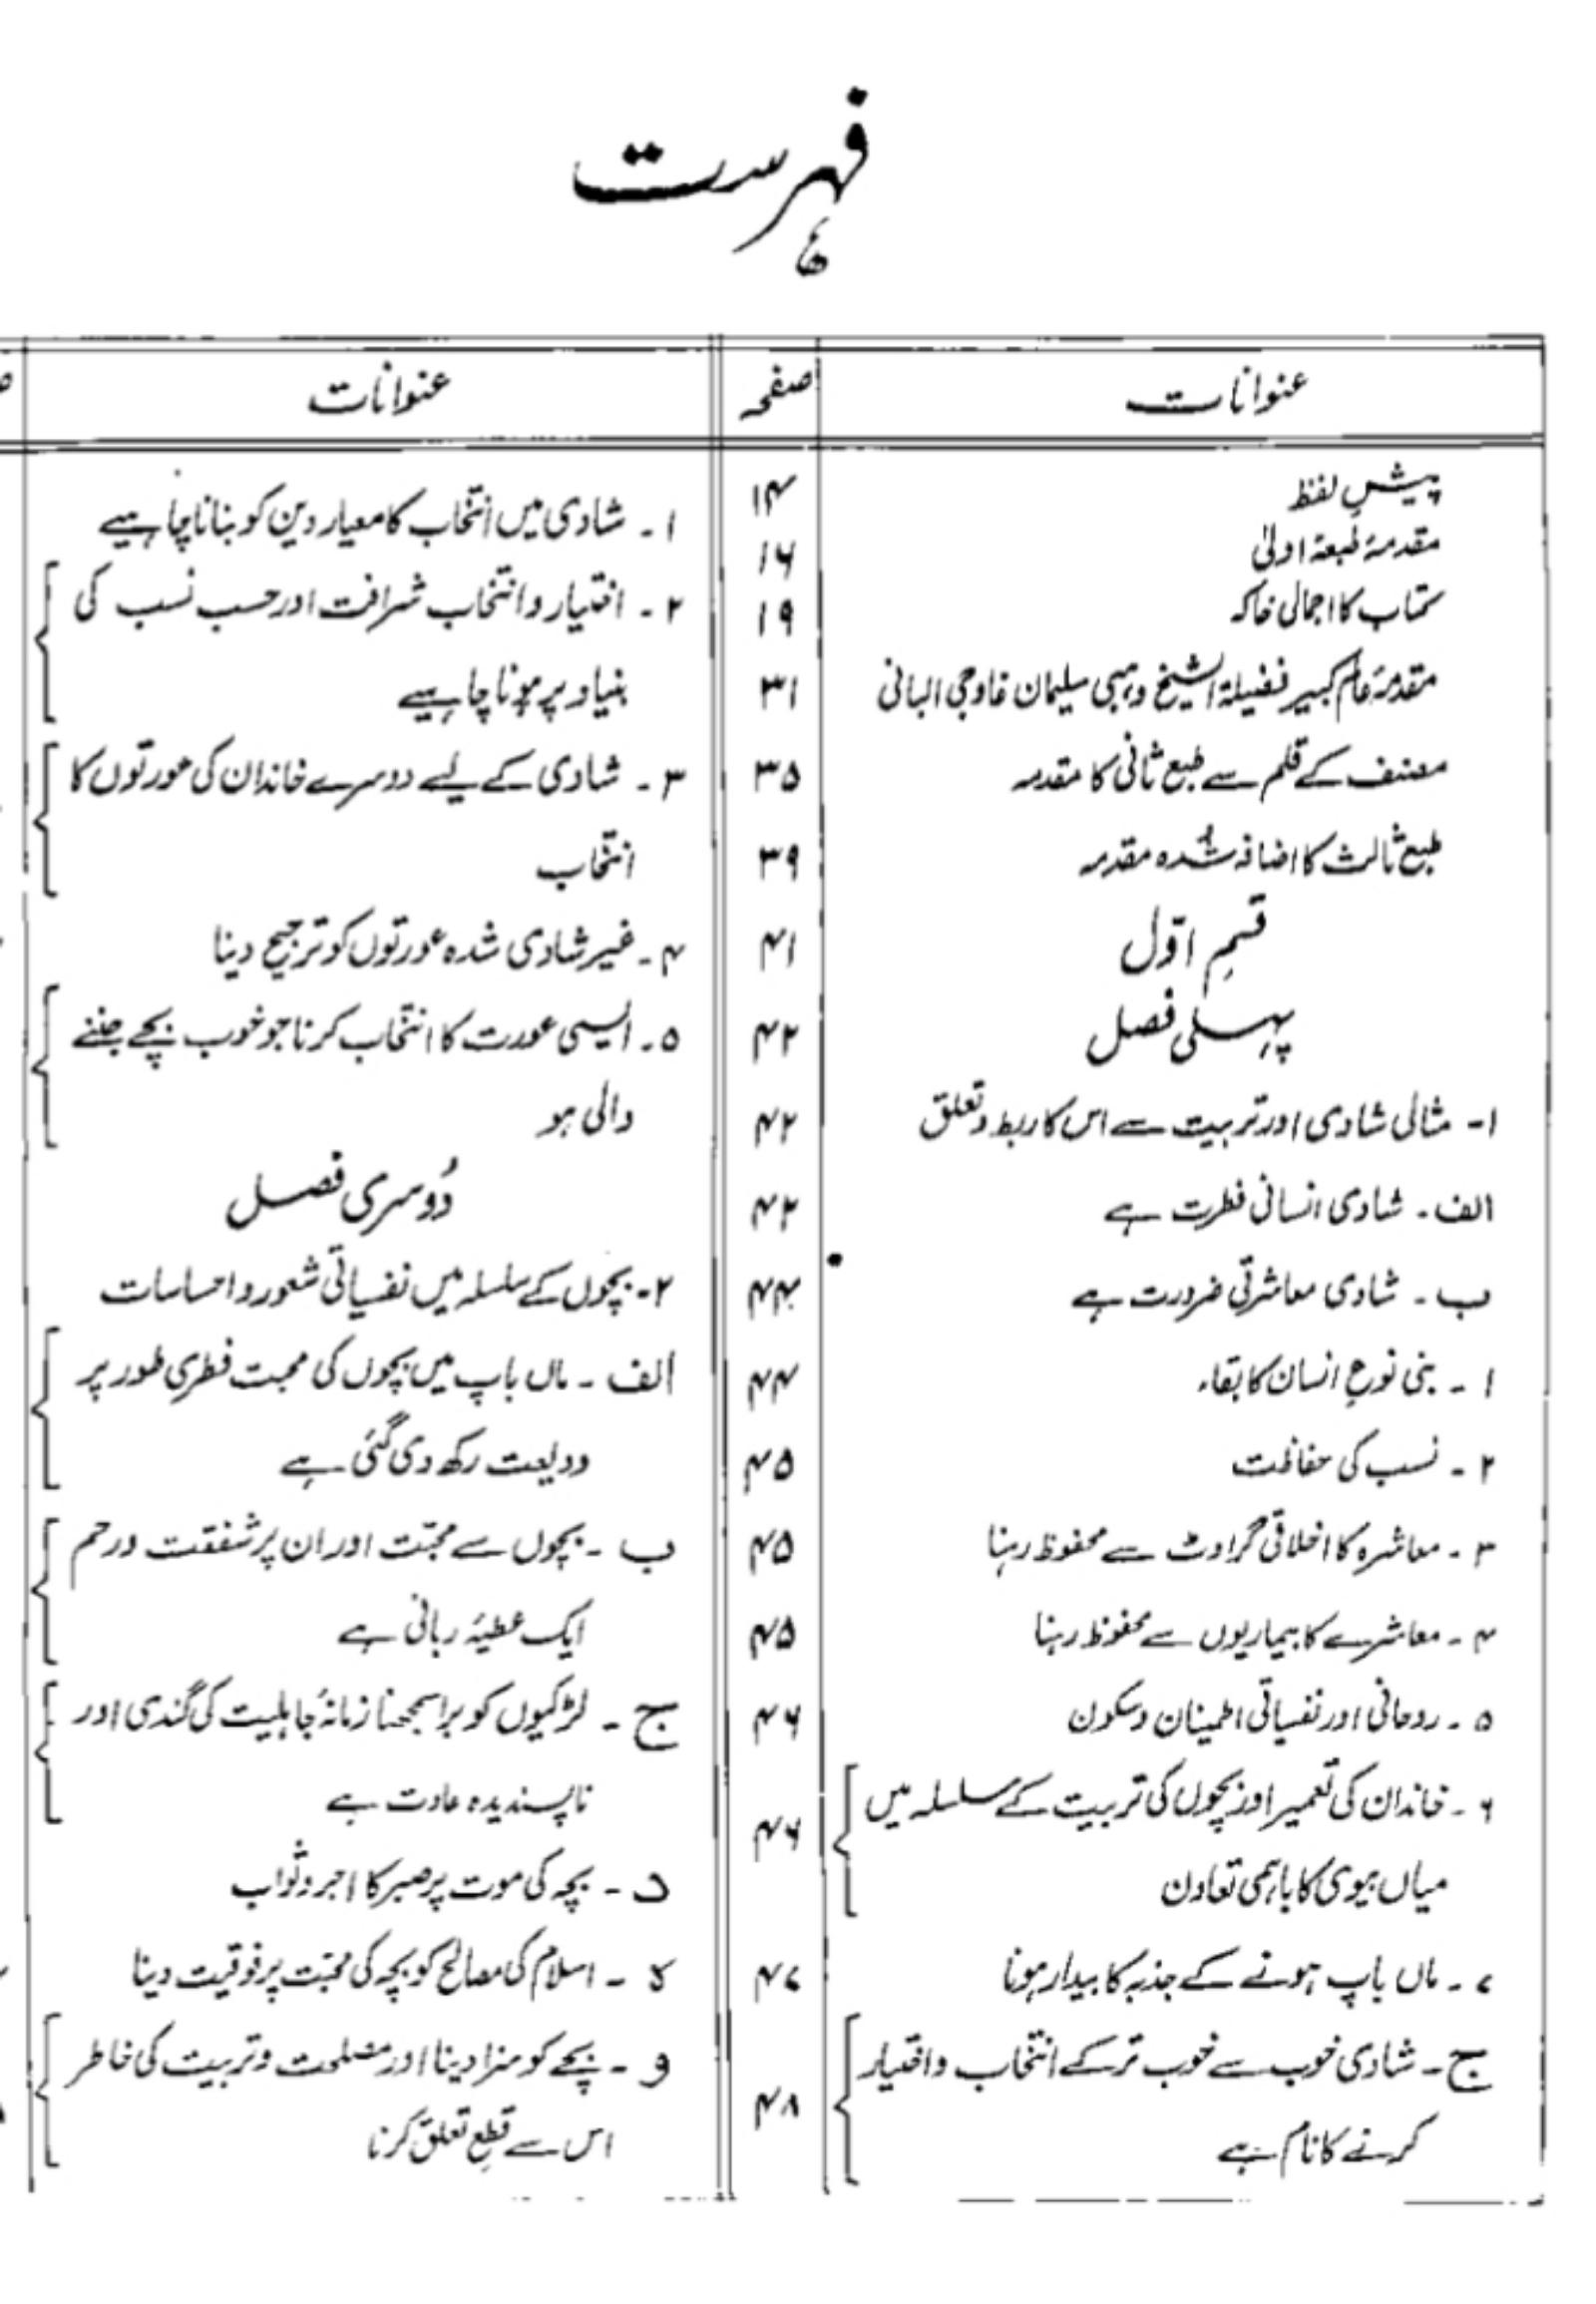 فہرست
عنوانات صفحہ
پیش لفظ ۱۴
مقدمۂ طبعۂ اولیٰ ۱۶
کتاب کا اجمالی خاکہ ۱۹
مقدمۂ عالم کبیر فضیلۃ الشیخ وہبی سلیمان غاوجی البانی ۳۱
مصنف کے قلم سے طبع ثانی کا مقدمہ ۳۵
طبع ثالث کا اضافہ شُدہ مقدمہ ۳۹
قسمِ اوّل ۴۱
پہلی فصل ۴۲
۱- مثالی شادی اور تربیت سے اس کا ربط و تعلق ۴۲
الف۔ شادی انسانی فطرت ہے ۴۲
ب۔ شادی معاشرتی ضرورت ہے ۴۴
۱۔ بنی نوعِ انسان کا بقاء ۴۴
۲۔ نسب کی حفاظت ۴۵
۳۔ معاشرہ کا اخلاقی گراوٹ سے محفوظ رہنا ۴۵
۴۔ معاشرے کا بیماریوں سے محفوظ رہنا ۴۵
۵۔ روحانی اور نفسیاتی اطمینان و سکون ۴۶
۶۔ خاندان کی تعمیر اور بچوں کی تربیت کے سلسلہ میں
میاں بیوی کا باہمی تعاون ۴۶
۷۔ ماں باپ ہونے کے جذبہ کا بیدار ہونا ۴۷
ج۔ شادی خوب سے خوب تر کے انتخاب و اختیار
کرنے کا نام ہے ۴۸
عنوانات
۱۔ شادی میں انتخاب کا معیار دین کو بنانا چاہیے
۲۔ اختیار و انتخاب شرافت اور حسب نسب کی
بنیاد پر ہونا چاہیے
۳۔ شادی کے لیے دوسرے خاندان کی عورتوں کا
انتخاب
۴۔ غیر شادی شدہ عورتوں کو ترجیح دینا
۵۔ ایسی عورت کا انتخاب کرنا جو خوب بچے جننے
والی ہو
دُوسری فصل
۲۔ بچوں کے سلسلہ میں نفسیاتی شعور و احساسات
الف۔ ماں باپ میں بچوں کی محبت فطری طور پر
ودیعت رکھ دی گئی ہے
ب۔ بچوں سے محبّت اور ان پر شفقت و رحم
ایک عطیۂ ربانی ہے
ج۔ لڑکیوں کو برا سمجھنا زمانۂ جاہلیت کی گندی اور
ناپسندیدہ عادت ہے
د۔ بچہ کی موت پر صبر کا اجر و ثواب
ہ۔ اسلام کی مصالح کو بچہ کی محبّت پر فوقیت دینا
و۔ بچے کو سزا دینا اور مصلحت و تربیت کی خاطر
اس سے قطع تعلق کرنا